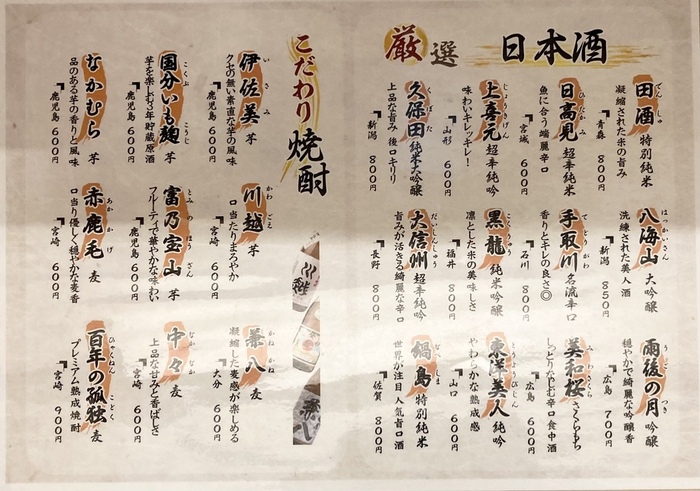 厳選 日本酒
田酒 特別純米
でんしゅ
凝縮された米の旨み
青森 800円
日高見 超辛純米
ひたかみ
魚に合う端麗辛口
宮城 600円
上喜元 超辛純吟
じょうきげん
味わいキレッキレ!
山形 600円
久保田 純米大吟醸
くぼた
上品な旨み 後口キリリ
新潟 800円
八海山 大吟醸
はっかいさん
洗練された美人酒
新潟 850円
手取川 名流辛口
てどりがわ
香りとキレの良さ◎
石川 800円
黒龍 純米吟醸
こくりゅう
凛とした米の美味しさ
福井 800円
大信州 超辛純吟
だいしんしゅう
旨みが活きる綺麗な辛口
長野 800円
雨後の月 吟醸
うごのつき
穏やかで綺麗な吟醸香
広島 700円
美和桜 さくらもち
みわさくら
しっとりなじむ辛口食中酒
広島 600円
東洋美人 純吟
とうようびじん
やわらかな熟成感
山口 600円
鍋島 特別純米
世界が注目 人気旨口酒
佐賀 800円
こだわり焼酎
伊佐美 芋
いさみ
クセの無い素直な芋の風味
鹿児島 600円
国分いも麹 芋
こくぶ こうじ
芋を楽しむ3年貯蔵原酒
鹿児島 600円
なかむら 芋
品のある芋の香りと風味
鹿児島 600円
川越 芋
かわごえ
口当たりまろやか
宮崎 600円
富乃宝山 芋
とみのほうざん
フルーティで華やかな味わい
鹿児島 600円
赤鹿毛 麦
あかかげ
口当り優しく穏やかな麦香
宮崎 600円
兼八 麦
かねはち
凝縮した麦感が楽しめる
大分 600円
中々 麦
なかなか
上品な甘みと香ばしさ
宮崎 600円
百年の孤独 麦
ひゃくねん こどく
プレミアム熟成焼酎
宮崎 900円